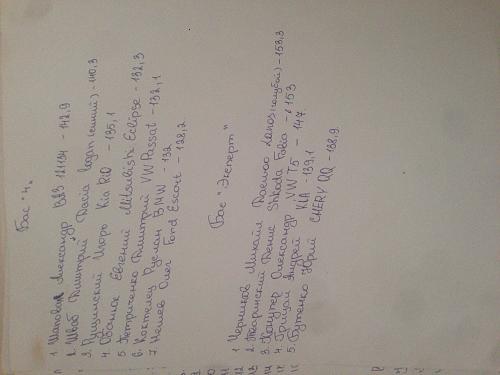 Бас "4"
1 Шаповал Александр ВАЗ 21134 - 142,9
2. Швab Дмитрий Dacia Logan (синий) - 140,3
3. Рущинский Игорь Kia Rio - 135,1
4. Ободнюк Евгений Mitsubishi Eclipse - 132,3
5 Петриченко Дмитрий VW Passat - 132,1
6. Коктелец Руслан BMW - 132
7 Нешев Олег Ford Escort - 128,2
Бас "Эксперт"
1 Черников Михайл Daewoo Lanos (голубой) - 158,3
2. Тваринский Денис Shkoda Fabia - 153
3. Конупер Олександр VW T5 - 147
4. Грицай Андрей KIA - 139,1
5. Бутенко Юрий CHERY QQ - 138,9